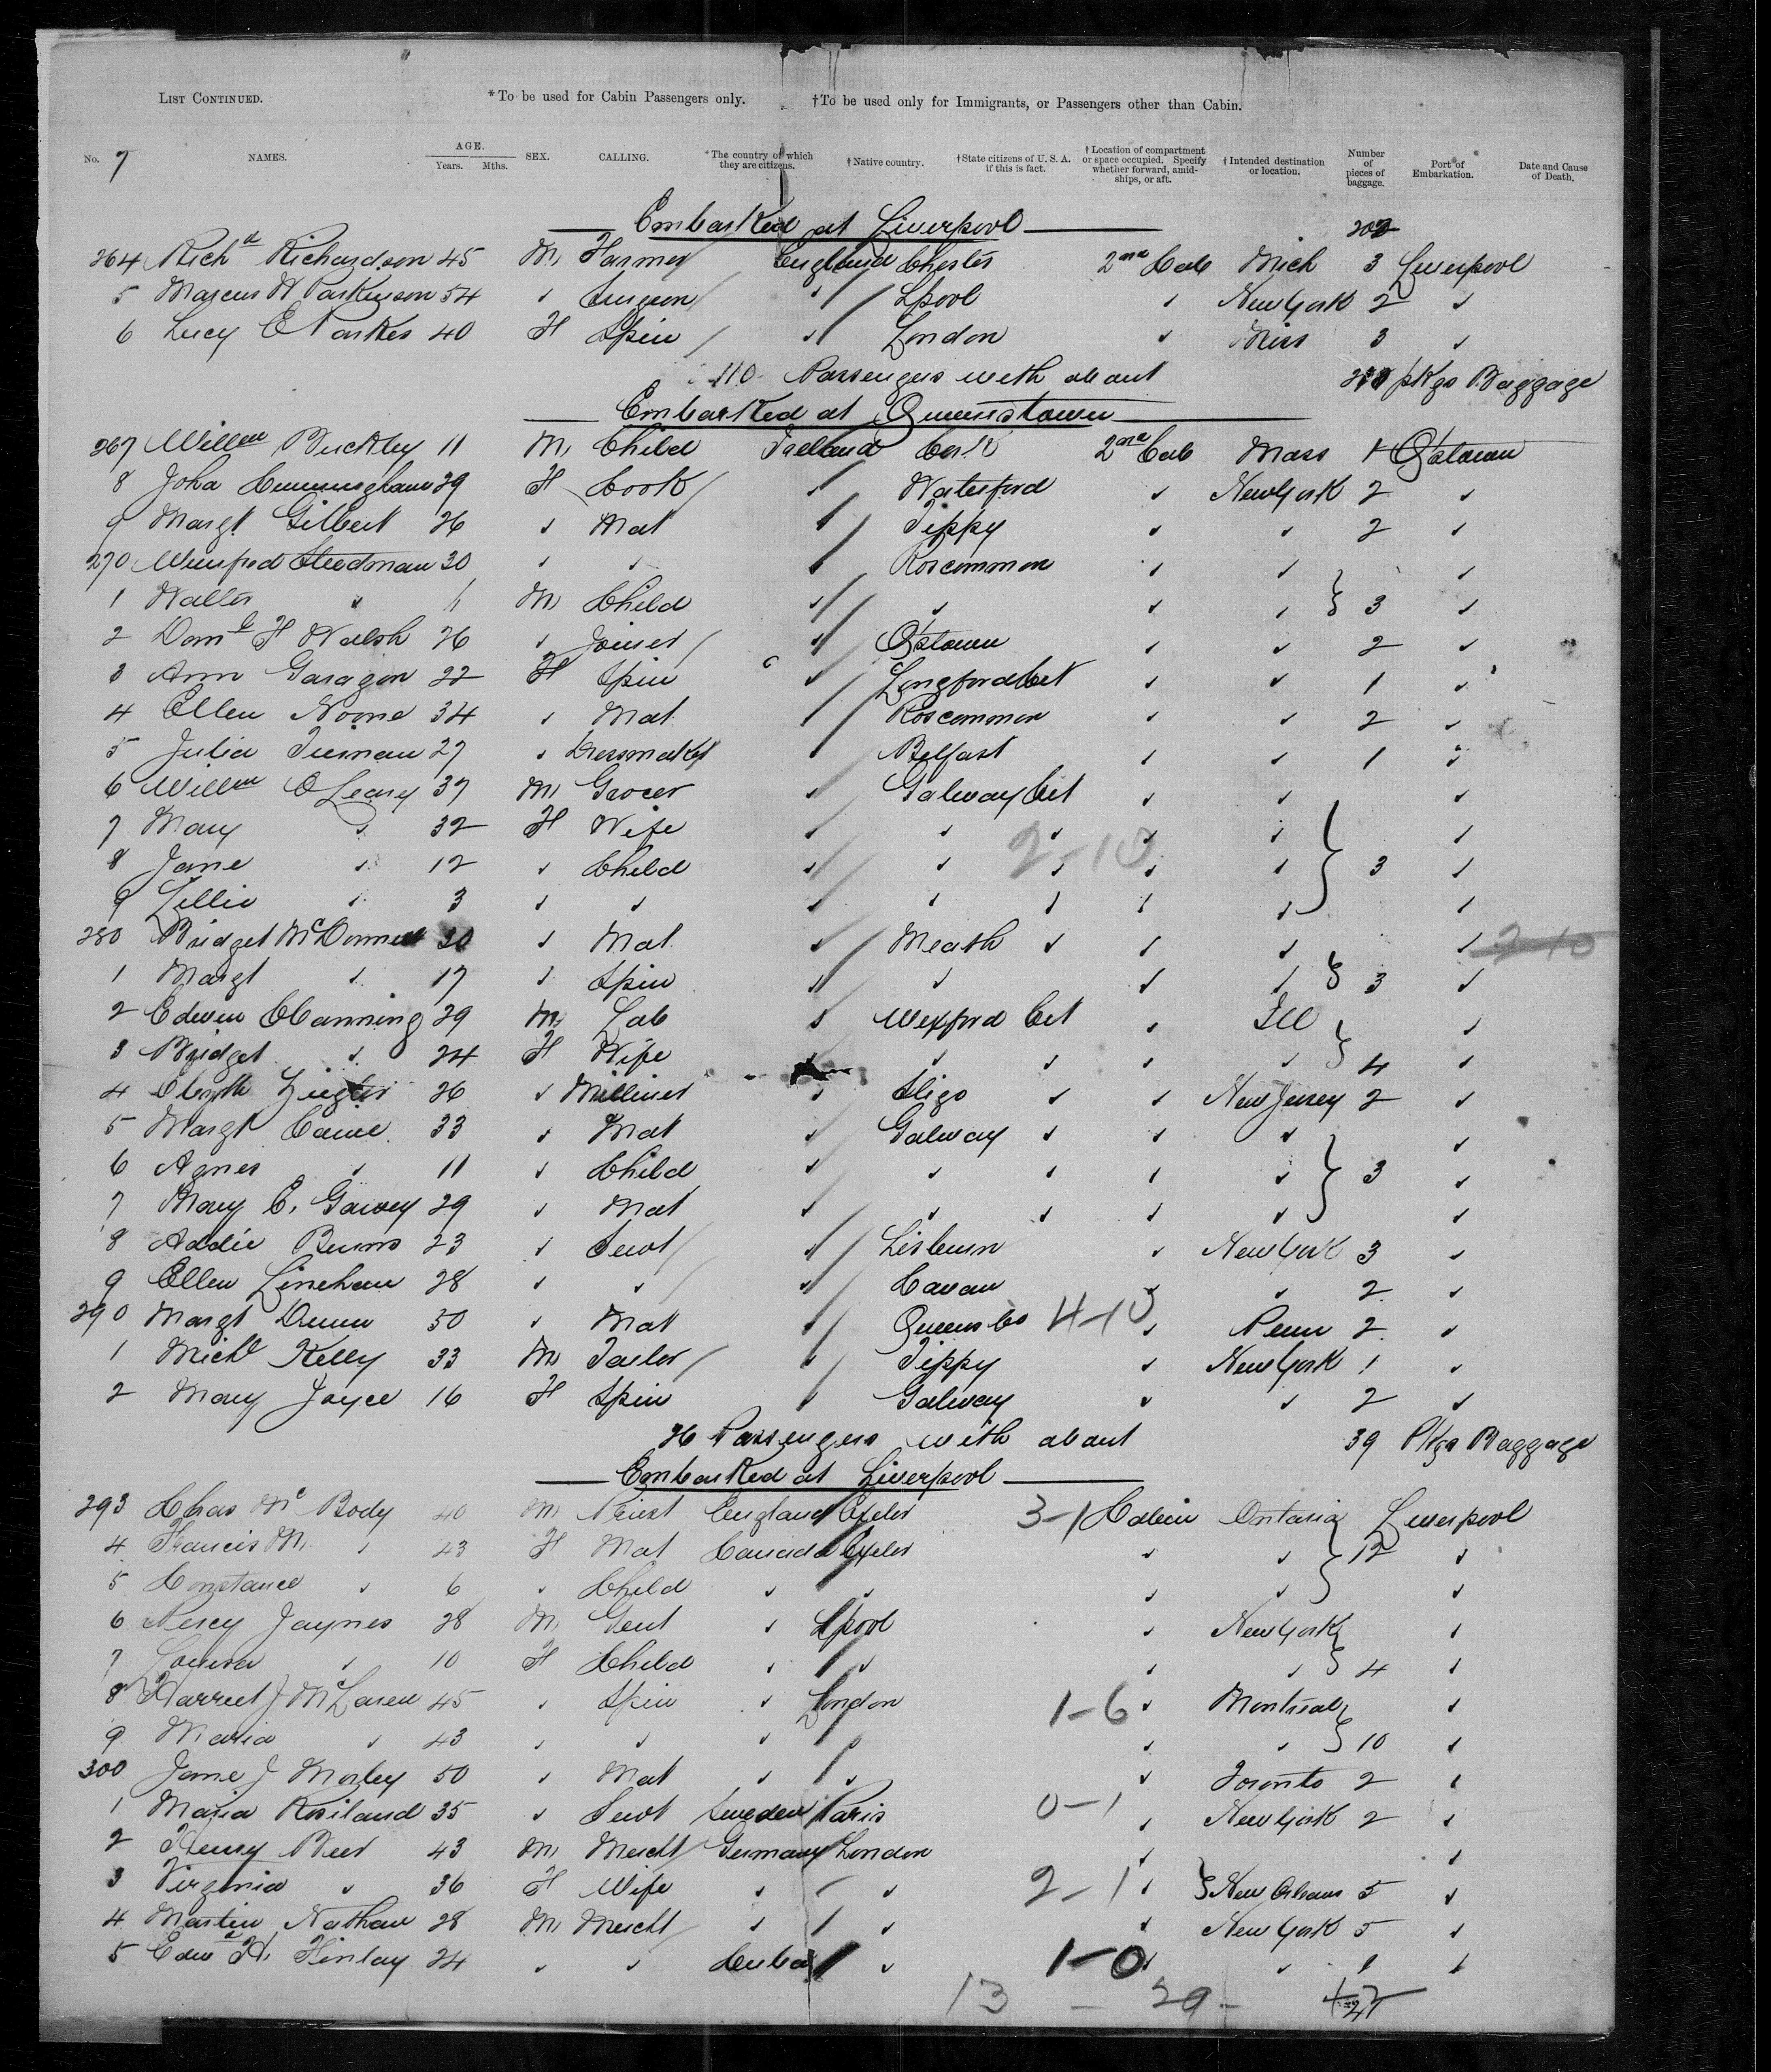 List Continued. *To be used for Cabin Passengers only. †To be used only for Immigrants, or Passengers other than Cabin.
No. 7 NAMES. AGE. Years. Mths. SEX. CALLING. *The country of which they are citizens. †Native country. †State citizens of U. S. A. if this is fact. †Location of compartment or space occupied. Specify whether forward, amidships, or aft. †Intended destination or location. Number of pieces of baggage. Port of Embarkation. Date and Cause of Death.
Embarked at Liverpool
264 Richd Richardson 45 M Farmer England Chester 2nd Cab Mich 3 Liverpool
5 Marcus W Parkinson 54 " Surgeon " Lpool " New York 2 "
6 Lucy E Parkes 40 F Spin " London " Miss 3 "
110 Passengers with about pkgs Baggage
Embarked at Queenstown
267 Willm Buckley 11 M Child Ireland Cork 2nd Cab Mass 1 Qstown
8 Joha Cunningham 29 F Cook " Waterford " New York 2 "
9 Margt Gilbert 26 " Mat " Tippy " " 2 "
270 Winifred Steedman 30 " " " Roscommon " " "
1 Walter " M Child " " " " 3 "
2 Danl F Walsh 26 " Joiner " Qstown " " 2 "
3 Ann Garagon 22 F Spin " Longford Cet " " 1 "
4 Ellen Noone 34 " Mat " Roscommon " " 2 "
5 Julia Tiernan 27 " Dressmaker " Belfast " " 1 "
6 Willm O'Leary 37 M Grocer " Galway Cet " " "
7 Mary " 32 F Wife " " " " " "
8 Jane " 12 " Child " " 2-10 " " " 3 "
9 Lillie " 3 " " " " " " " "
280 Bridget McDonnell 30 " Mat " Meath " " " " 2-10
1 Margt " 17 " Spin " " " " 3 "
2 Edwin Channing 29 M Lab " Wexford Cet " Ill "
3 Bridget " 24 F Wife " " " " 4 "
4 Elizth 26 " Milliner " Sligo " " New Jersey 2 "
5 Margt 33 " Mat " Galway " " " "
6 Agnes " 11 " Child " " " " " 3 "
7 Mary C. Garvey 29 " Mat " " " " " "
8 Addie Burns 23 " Servt " Lisburn " New York 3 "
9 Ellen Linehan 28 " " " Cavan " " 2 "
290 Margt Dunn 50 " Mat " Queens Co 4-10 " Penn 2 "
1 Michl Kelly 33 M Tailor " Tippy " New York 1 "
2 Mary Joyce 16 F Spin " Galway " " 2 "
26 Passengers with about 39 Pkgs Baggage
Embarked at Liverpool
293 Chas Mc Body 40 M Priest England Exeter 3-1 Cabin Ontario Liverpool
4 Francis M. " 43 F Mat Canada Exeter " " 12 "
5 Constance " 6 " Child " " " " "
6 Percy Jaynes 28 M Gent " Lpool " New York "
7 Louisa " 10 F Child " " " " 4 "
8 Harriet J McLaren 45 " Spin " London 1-6 " Montreal "
9 Maria " 43 " " " " " " 10 "
300 Jane J Morley 50 " Mat " " " Toronto 2 "
1 Maria Rosiland 35 " Servt Sweden Paris 0-1 " New York 2 "
2 Henry Beer 43 M Mercht Germany London " "
3 Virginia " 36 F Wife " " 2-1 " New Orleans 5 "
4 Martin Nathan 28 M Mercht " " " New York 5 "
5 Edwd H. Finlay 24 " " Cuba " 1-0 " " 1 "
13 - 29 -